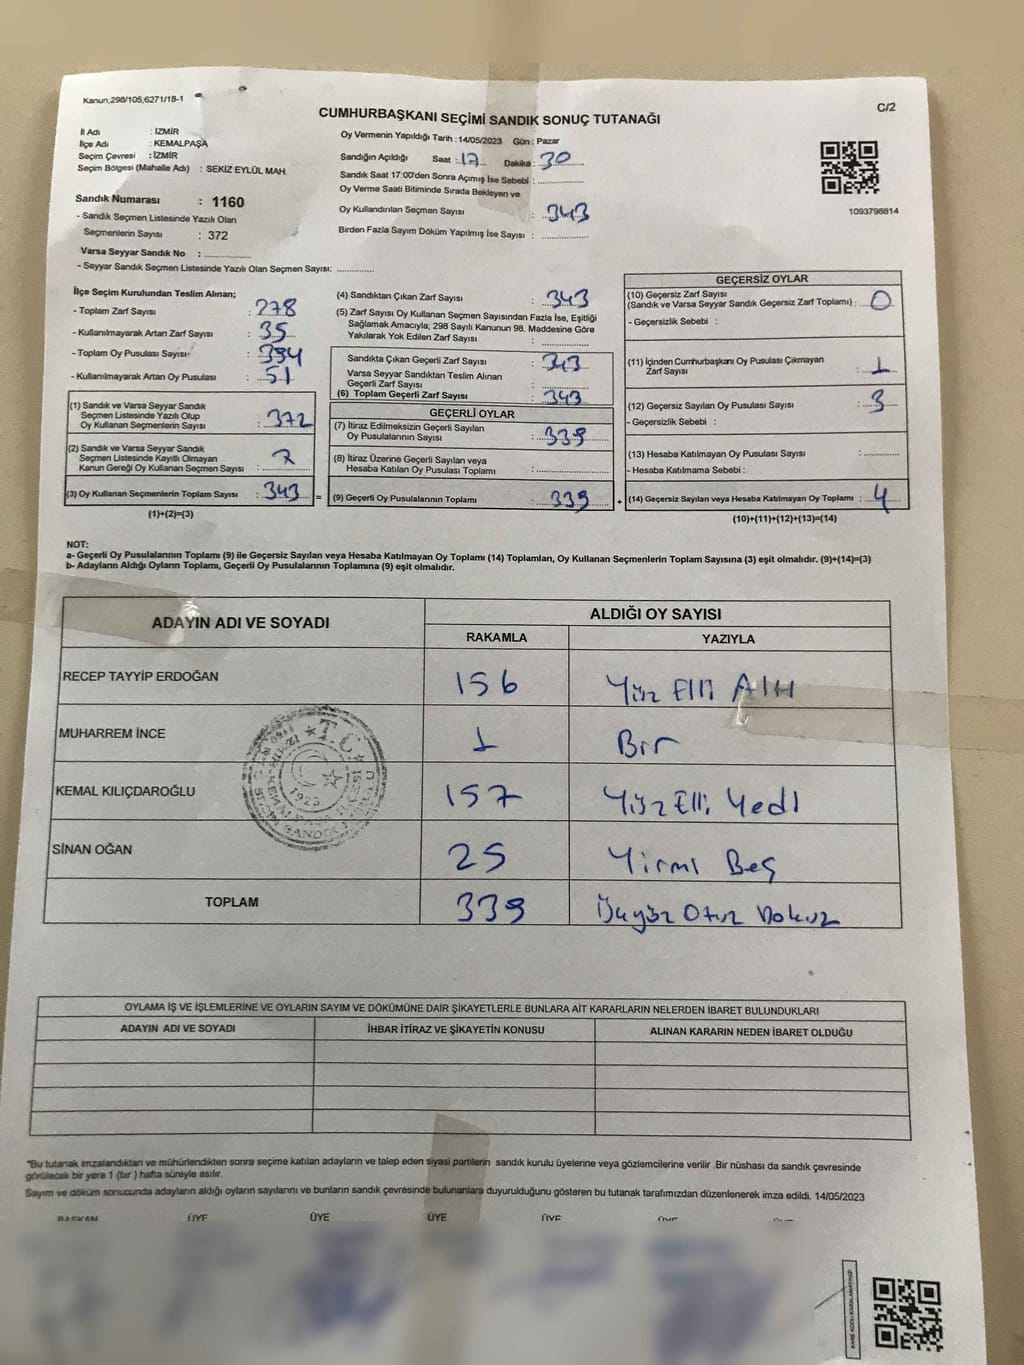 Kanun;298/105;6271/18-1
C/2
CUMHURBAŞKANI SEÇİMİ SANDIK SONUÇ TUTANAĞI
İl Adı : İZMİR
İlçe Adı : KEMALPAŞA
Seçim Çevresi : İZMİR
Seçim Bölgesi (Mahalle Adı) : SEKİZ EYLÜL MAH.
Sandık Numarası : 1160
- Sandık Seçmen Listesinde Yazılı Olan
Seçmenlerin Sayısı : 372
Varsa Seyyar Sandık No : ................
- Seyyar Sandık Seçmen Listesinde Yazılı Olan Seçmen Sayısı: ............
Oy Vermenin Yapıldığı Tarih : 14/05/2023 Gün : Pazar
Sandığın Açıldığı Saat : 17 Dakika : 30
Sandık Saat 17:00'den Sonra Açımış İse Sebebi : ................
Oy Verme Saati Bitiminde Sırada Bekleyen ve
Oy Kullandırılan Seçmen Sayısı : 343
Birden Fazla Sayım Döküm Yapılmış İse Sayısı : ................
1093798814
İlçe Seçim Kurulundan Teslim Alınan;
- Toplam Zarf Sayısı : 278
- Kullanılmayarak Artan Zarf Sayısı : 35
- Toplam Oy Pusulası Sayısı : 394
- Kullanılmayarak Artan Oy Pusulası : 51
(1) Sandık ve Varsa Seyyar Sandık
Seçmen Listesinde Yazılı Olup
Oy Kullanan Seçmenlerin Sayısı : 372
(2) Sandık ve Varsa Seyyar Sandık
Seçmen Listesinde Kayıtlı Olmayan
Kanun Gereği Oy Kullanan Seçmen Sayısı : 7
(3) Oy Kullanan Seçmenlerin Toplam Sayısı : 343 =
(1)+(2)=(3)
(4) Sandıktan Çıkan Zarf Sayısı : 343
(5) Zarf Sayısı Oy Kullanan Seçmen Sayısından Fazla İse, Eşitliği
Sağlamak Amacıyla; 298 Sayılı Kanunun 98. Maddesine Göre
Yakılarak Yok Edilen Zarf Sayısı : ................
Sandıkta Çıkan Geçerli Zarf Sayısı : 343
Varsa Seyyar Sandıktan Teslim Alınan
Geçerli Zarf Sayısı : ................
(6) Toplam Geçerli Zarf Sayısı : 343
GEÇERLİ OYLAR
(7) İtiraz Edilmeksizin Geçerli Sayılan
Oy Pusulalarının Sayısı : 339
(8) İtiraz Üzerine Geçerli Sayılan veya
Hesaba Katılan Oy Pusulası Toplamı : ................
(9) Geçerli Oy Pusulalarının Toplamı : 339 +
GEÇERSİZ OYLAR
(10) Geçersiz Zarf Sayısı
(Sandık ve Varsa Seyyar Sandık Geçersiz Zarf Toplamı) : 0
- Geçersizlik Sebebi :
(11) İçinden Cumhurbaşkanı Oy Pusulası Çıkmayan
Zarf Sayısı : 1
(12) Geçersiz Sayılan Oy Pusulası Sayısı : 3
- Geçersizlik Sebebi :
(13) Hesaba Katılmayan Oy Pusulası Sayısı : ............
- Hesaba Katılmama Sebebi :
(14) Geçersiz Sayılan veya Hesaba Katılmayan Oy Toplamı : 4
(10)+(11)+(12)+(13)=(14)
NOT:
a- Geçerli Oy Pusulalarının Toplamı (9) ile Geçersiz Sayılan veya Hesaba Katılmayan Oy Toplamı (14) Toplamları, Oy Kullanan Seçmenlerin Toplam Sayısına (3) eşit olmalıdır. (9)+(14)=(3)
b- Adayların Aldığı Oyların Toplamı, Geçerli Oy Pusulalarının Toplamına (9) eşit olmalıdır.
ADAYIN ADI VE SOYADI ALDIĞI OY SAYISI
RAKAMLA YAZIYLA
RECEP TAYYİP ERDOĞAN 156 Yüz Elli Altı
MUHARREM İNCE 1 Bir
KEMAL KILIÇDAROĞLU 157 Yüz Elli Yedi
SİNAN OĞAN 25 Yirmi Beş
TOPLAM 339 Üçyüz Otuz Dokuz
T.C.
1923
OYLAMA İŞ VE İŞLEMLERİNE VE OYLARIN SAYIM VE DÖKÜMÜNE DAİR ŞİKAYETLERLE BUNLARA AİT KARARLARIN NELERDEN İBARET BULUNDUKLARI
ADAYIN ADI VE SOYADI İHBAR İTİRAZ VE ŞİKAYETİN KONUSU ALINAN KARARIN NEDEN İBARET OLDUĞU
"Bu tutanak imzalandıktan ve mühürlendikten sonra seçime katılan adayların ve talep eden siyasi partilerin sandık kurulu üyelerine veya gözlemcilerine verilir .Bir nüshası da sandık çevresinde
görülecek bir yere 1 (bir ) hafta süreyle asılır.
Sayım ve döküm sonucunda adayların aldığı oyların sayılarını ve bunların sandık çevresinde bulunanlara duyurulduğunu gösteren bu tutanak tarafımızdan düzenlenerek imza edildi. 14/05/2023
BAŞKAN ÜYE ÜYE ÜYE ÜYE ÜYE ÜYE